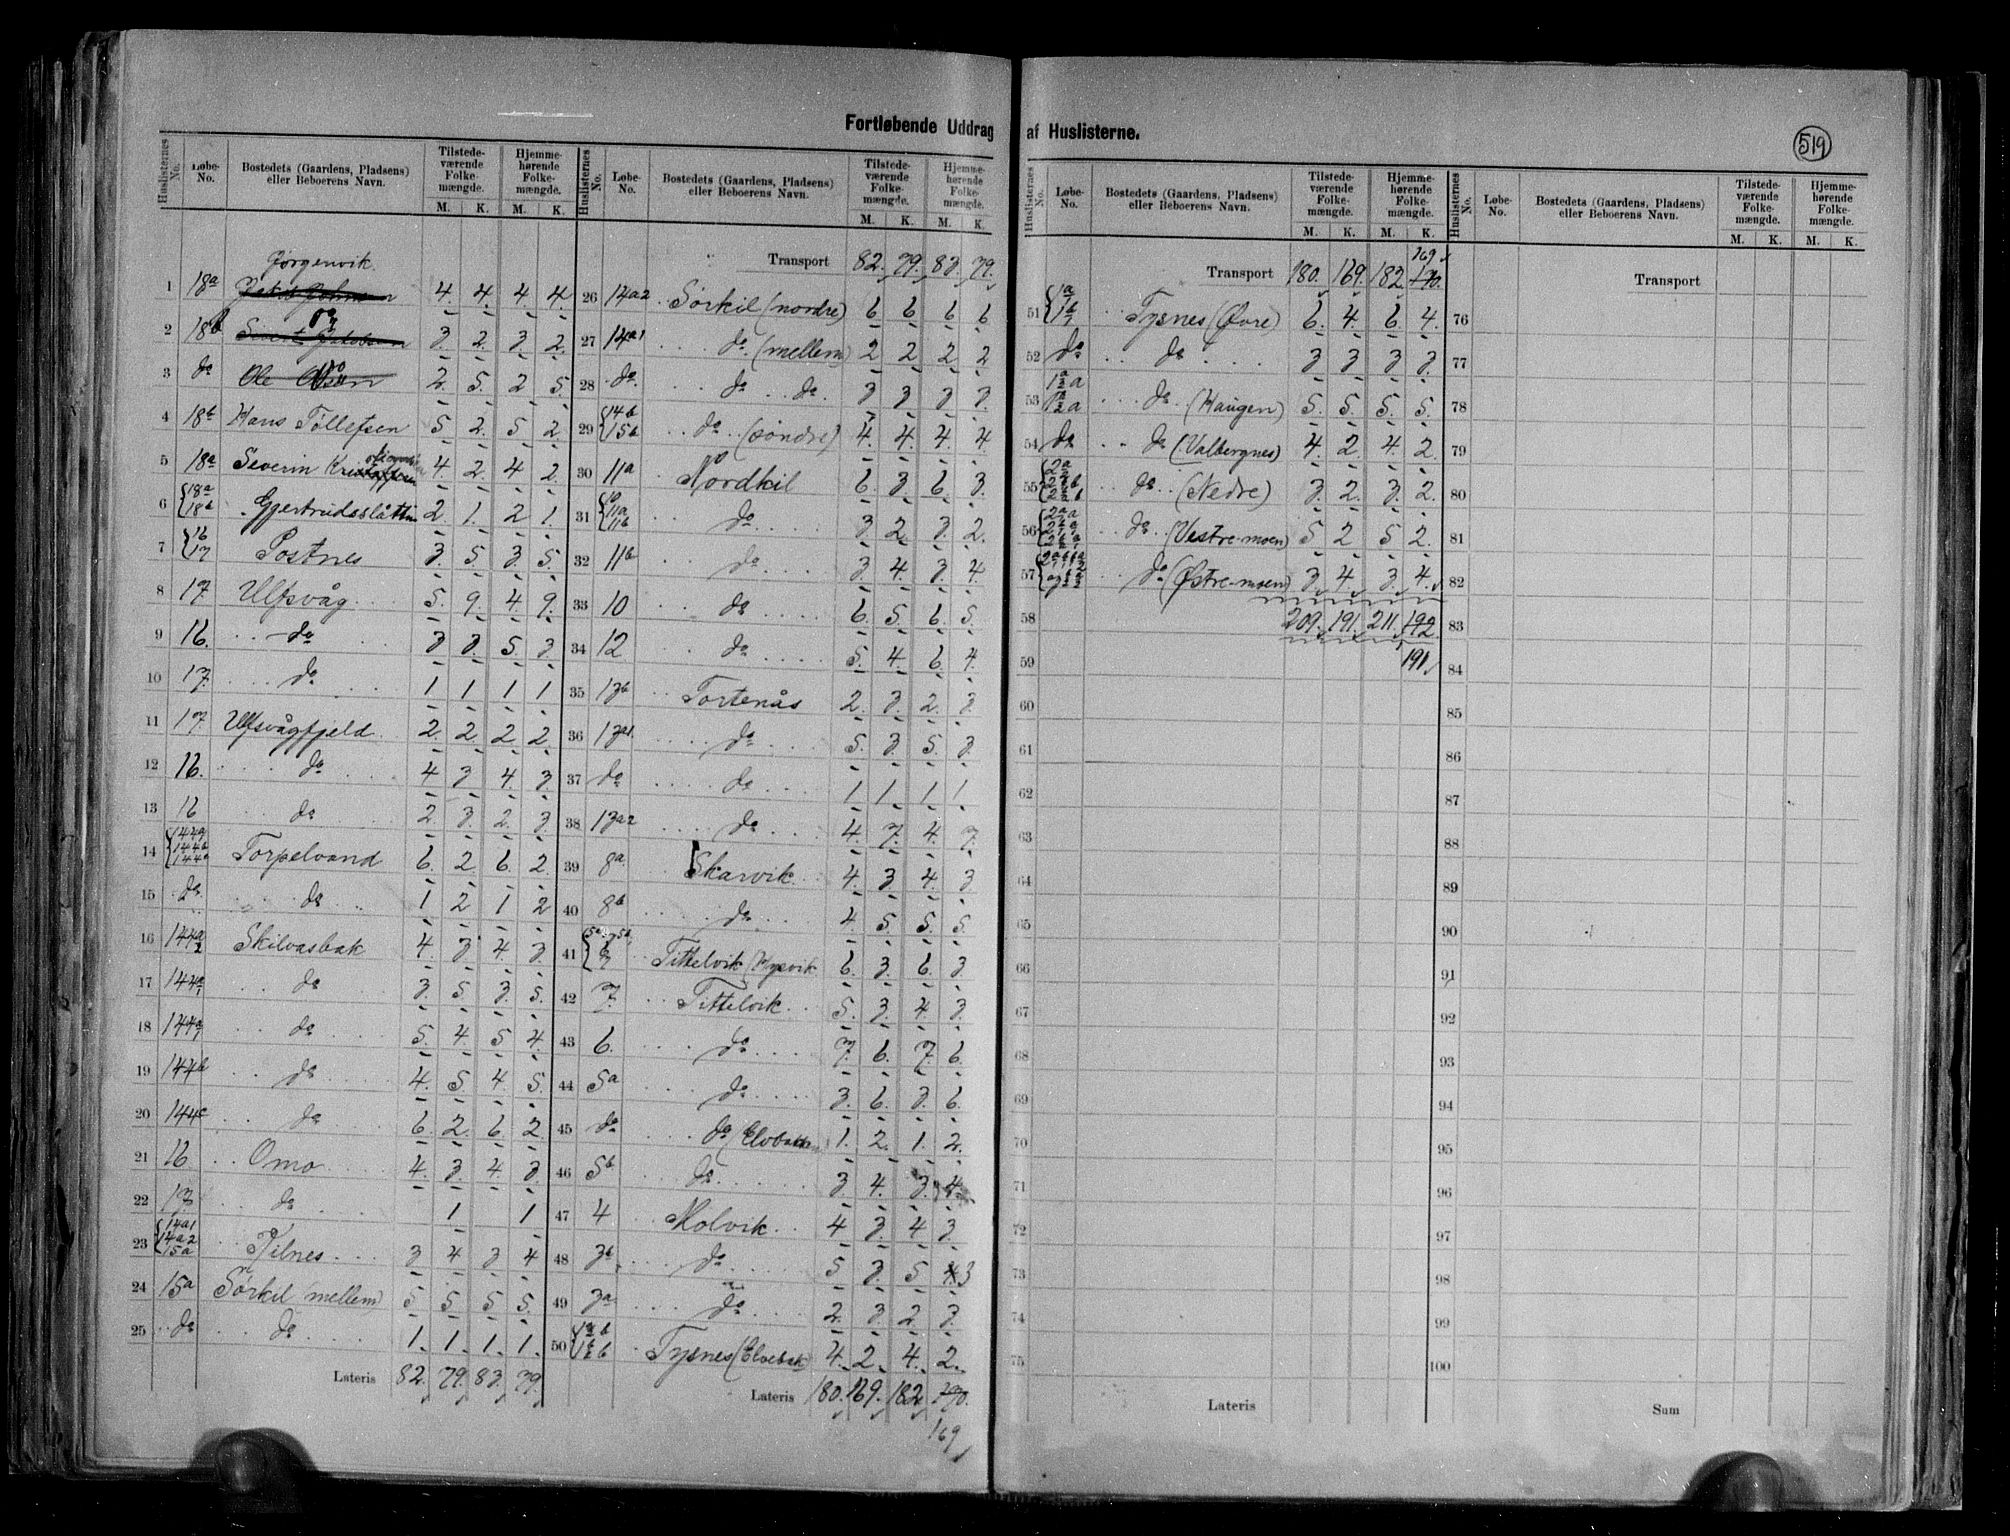 Fortløbende Uddrag af Huslisterne.
519
Huslisternes No. | Løbe-No. | Bostedets (Gaardens, Pladsens) eller Beboerens Navn. | Tilstedeværende Folkemængde. M. K. | Hjemmehørende Folkemængde. M. K.
Jørgenvik.
1 18a 4. 4. 4. 4
2 18b do 3. 2. 3. 2.
3 do Ole Olsen do 2. 5. 2 5.
4 18b Hans Tøllefsen 5 2. 5 2
5 18a Severin 4 2. 4 2.
6 18a 18b Gjertrudsslåtten 2. 1. 2 1.
7 16 17 Postnes 3. 5. 3. 5.
8 17. Ulfsvåg 5. 9. 4. 9.
9 16. do 3 3. 5. 3.
10 17. do 1 1 1 1
11 17. Ulfsvågfjeld. 2. 2. 2. 2.
12 16. do 4 3 4. 3.
13 16 do 2. 3. 2. 3.
14 144a 144b 144c Torpelvand 6. 2 6. 2.
15 do do 1 2 1 2
16 144a2 Skilvasbak 4. 3 4. 3.
17 144a1 do 3. 5 3. 5.
18 144a1 do 5. 4. 5 4.
19 144b do 4. 5 4. 5
20 144c do 6. 2. 6. 2.
21 16 Omo 4. 3 4. 3
22 17 do 1 1
23 14a1 14a2 15a Tilnes 3 4 3 4
24 15a Sørkil (mellem) 5 5 5 5.
25 do do 1. 1. 1. 1.
Lateris 82. 79. 83. 79.
Transport 82. 79. 83. 79.
26 14a2 Sörkil (nordre) 6 6 6 6
27 14a1 do (mellem) 2 2 2 2
28 do do do 3 3 3 3.
29 14b 15b do (söndre) 4. 4. 4. 4
30 11a Nordkil 6. 3. 6. 3.
31 10 11a 11b do 3 2. 3. 2.
32 11b do 3. 4. 3. 4
33 10 do 6. 5. 6. 5.
34 12 do 5. 4. 6. 4.
35 13b Tortenås 2. 3. 2. 3.
36 13a1 do 5. 3. 5. 3.
37 do do 1 1. 1 1.
38 13a2 do 4. 7. 4. 7.
39 8a Skarvik. 4. 3 4. 3
40 8b do 4 5. 5. 5.
41 5a 5b 6 7 Tittelvik (Hysvik 6. 3. 6. 3.
42 7. Tittelvik 5. 3. 4 3.
43 6. do 7. 6. 7. 6.
44 5a do 3. 6. 3. 6.
45 do do (Elvebakken) 1. 2. 1. 2.
46 5b do 3. 4. 3. 4.
47 4 Molvik 4 3 4 3.
48 3b do 5 3. 5 4. 3
49 3a do 2. 3. 2 3.
50 Tysnes (Elvebak) 4. 2. 4. 2.
Lateris 180. 169. 182. 170.
169
169
Transport 180. 169. 182. 170.
51 1a1 1b1 Tysnes (Øvre) 6. 4. 6. 4.
52 do do 3 3 3 3.
53 do (Haugen) 5. 5. 5. 5.
54 do do (Valbergnes) 4. 2. 4. 2.
55 do (Nedre) 3. 2. 3. 2.
56 do (Vestre-moen) 5 2 5 2.
57 do (Østre-moen) 3. 4. 3. 4.
58 209. 191. 211. 192.
59 191.
60
61
62
63
64
65
66
67
68
69
70
71
72
73
74
75
Lateris
Transport
76
77
78
79
80
81
82
83
84
85
86
87
88
89
90
91
92
93
94
95
96
97
98
99
100
Sum